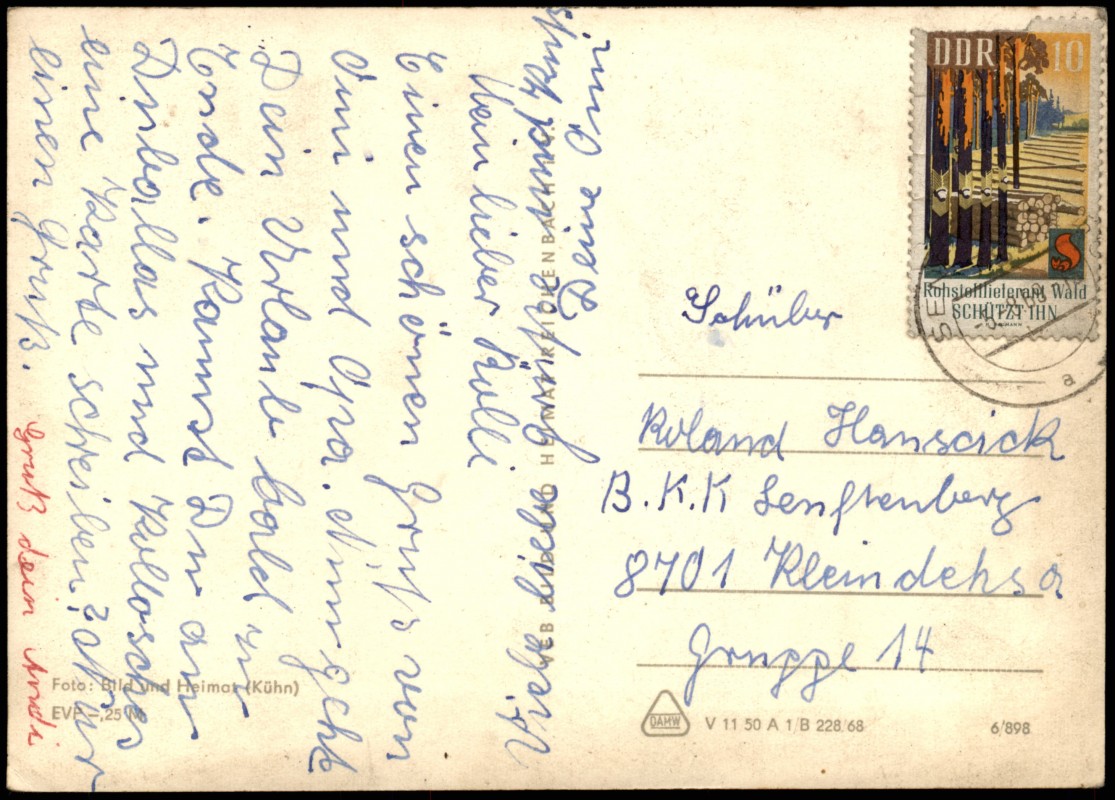 Mein lieber Rolli
Einen schönen Gruß von
Omi und Opa. Nun geht
Dein Urlaub bald zu
Ende. Kannst Du an
und
eine Karte schreiben?
einen Gruß.
liebe
Deine Omi
Gruß dein Andi
Foto: Bild und Heimat (Kühn)
EVP –,25 M
VEB BILD UND HEIMAT REICHENBACH
DDR 10
Rohstofflieferant Wald
SCHÜTZT IHN
a
Schüler
Roland Hanscick
B.K.K Senftenberg
8701 Kleindehsa
Gruppe 14
DAMW
V 11 50 A 1/B 228/68
6/898